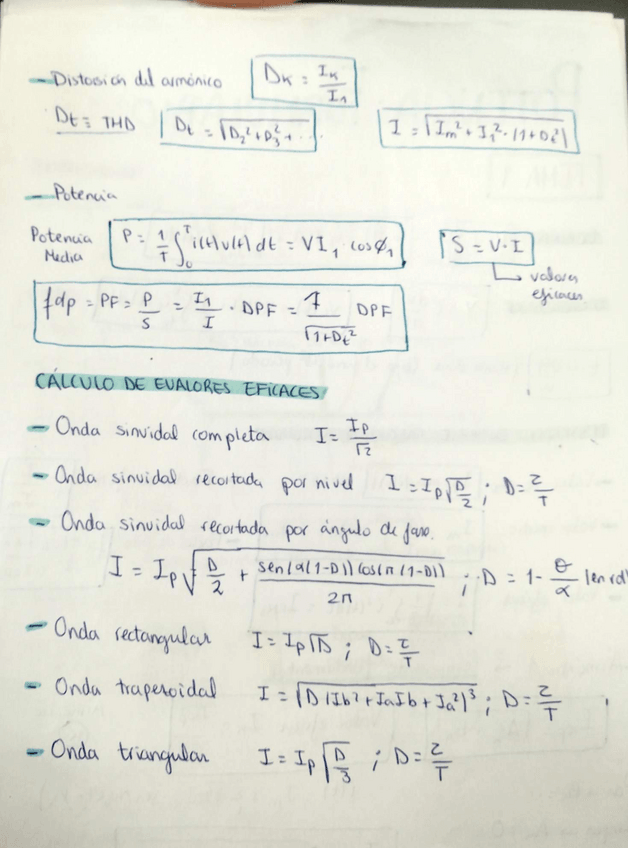 - Distorsión del armónico   Dk = Ik/I1
Dt ≡ THD   Dt = √(D2² + D3² + ...   I = √(Im² + I1² · (1+Dt²))
- Potencia
Potencia Media   P = 1/T ∫0^T i(t)v(t) dt = VI1 · cosØ1   S = V·I
↳ valores eficaces
fdp = PF = P/S = I1/I · DPF = 1/√(1+Dt²) DPF
CÁLCULO DE EVALORES EFICACES
- Onda sinuidal completa   I = Ip/√2
- Onda sinuidal recortada por nivel   I = Ip √(D/2) ; D = τ/T
- Onda sinuidal recortada por ángulo de fase.
I = Ip √(D/2 + sen(π(1-D)) cos(π(1-D)) / 2π) ; D = 1 - θ/α (en rd)
- Onda rectangular   I = Ip √D ; D = τ/T
- Onda trapezoidal   I = √(D (Ib² + IaIb + Ia²)/3) ; D = τ/T
- Onda triangular   I = Ip √(D/3) ; D = τ/T